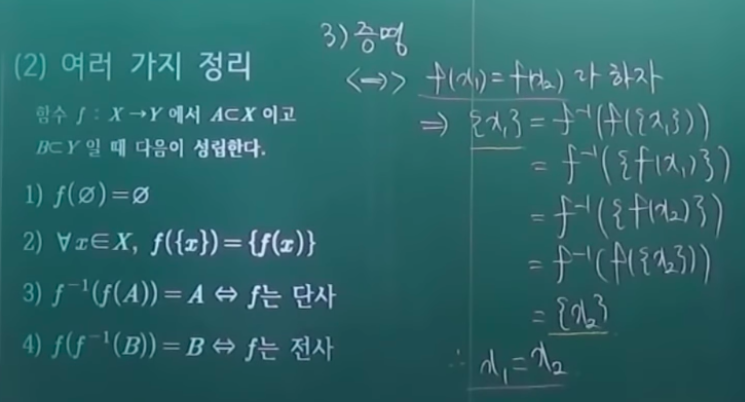 (2) 여러 가지 정리
함수 f : X→Y 에서 A⊂X 이고
B⊂Y 일 때 다음이 성립한다.
1) f(∅)=∅
2) ∀x∈X, f({x})={f(x)}
3) f⁻¹(f(A))=A ⇔ f는 단사
4) f(f⁻¹(B))=B ⇔ f는 전사
3) 증명
<⇒> f(x₁)=f(x₂) 라 하자
⇒ {x₁} = f⁻¹(f({x₁}))
= f⁻¹({f(x₁)})
= f⁻¹({f(x₂)})
= f⁻¹(f({x₂}))
= {x₂}
∴ x₁=x₂